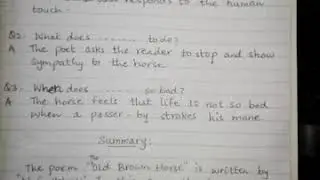 responds to the human
touch.
Q2. What does ......... to do?
A The poet asks the reader to stop and show
sympathy to the horse
Q3. When does ......... so bad?
A The horse feels that life is not so bad
when a passer-by strokes his mane.
Summary:
The poem The "Old Brown Horse" is written by